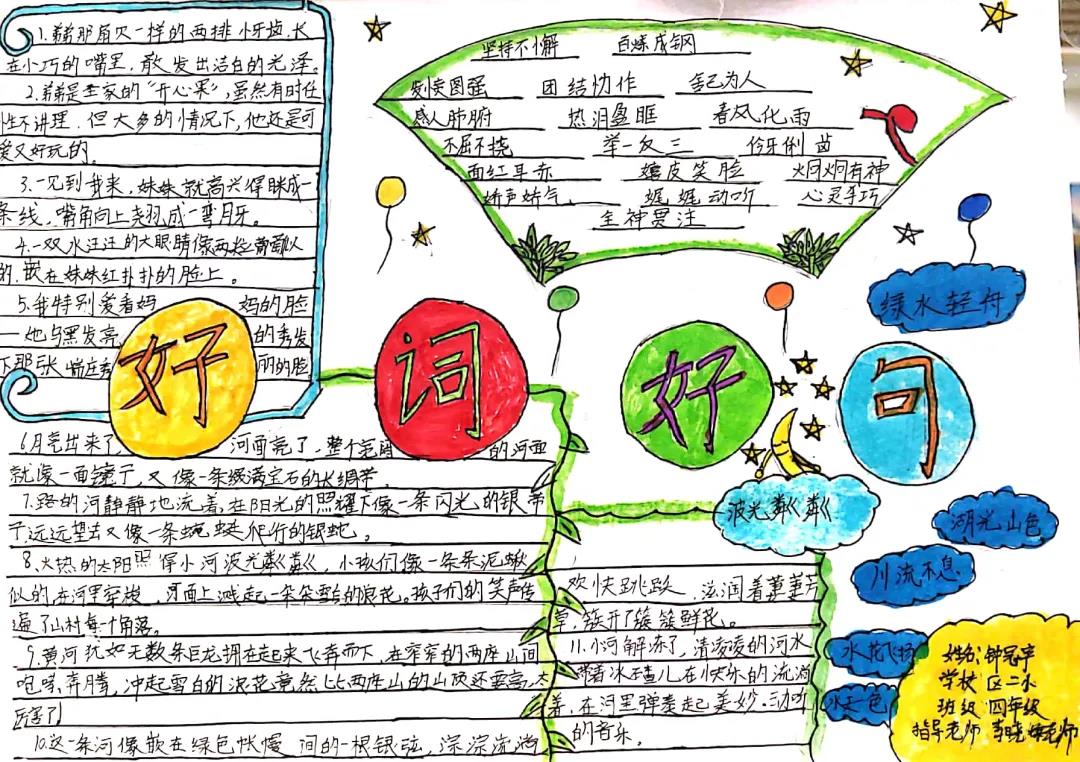 1.弟弟那有欠一样的两排小牙齿,长
在小巧的嘴里,散发出洁白的光泽。
2.弟弟是全家的“开心果”,虽然有时任
性不讲理,但大多的情况下,他还是可
爱又好玩的。
3.一见到我来,妹妹就高兴得眯成一
条线,嘴角向上翘,成一弯月牙。
4.一双水汪汪的大眼睛像两粒葡萄似
的,嵌在妹妹红扑扑的脸上。
5.我特别爱看妈 妈的脸
一她乌黑发亮 的秀发
下那张 丽的脸
坚持不懈 百炼成钢
发奋图强 团结协作 舍己为人
感人肺腑 热泪盈眶 春风化雨
不屈不挠 举一反三 伶牙俐齿
面红耳赤 嬉皮笑脸 炯炯有神
娇声娇气 娓娓动听 心灵手巧
全神贯注
好词好句
6月亮出来了, 河面亮了,整个 的河面
就像一面镜子,又像一条缀满宝石的长绸带.
7.路的河静静地流着,在阳光的照耀下像一条闪光的银带
子,远远望去又像一条蜿蜒爬行的银蛇。
8.火热的太阳照得小河波光粼粼,小孩们像一条条泥鳅
似的在河里穿梭,河面上溅起一朵朵雪白的浪花。孩子们的笑声传
遍了山村每个角落。
9.黄河犹如无数条巨龙拥在起来飞奔而下,在窄窄的两座山间
咆哮,奔腾,冲起雪白的浪花竟然比两座山的山顶还要高,太
厉害了!
10.这一条河像嵌在绿色帐幔间的一根银弦,淙淙流淌
欢快跳跃,滋润着萋萋芳
草,簇开了簇簇鲜花。
11.小河解冻了,清凌凌的河水
带着冰碴儿在快乐的流淌
着,在河里弹奏起美妙.动听
的音乐。
绿水轻舟
波光粼粼
湖光山色
川流不息
水花飞扬
水天一色
姓名:钟冠宇
学校 区二小
班级 四年级
指导老师 李晓 老师